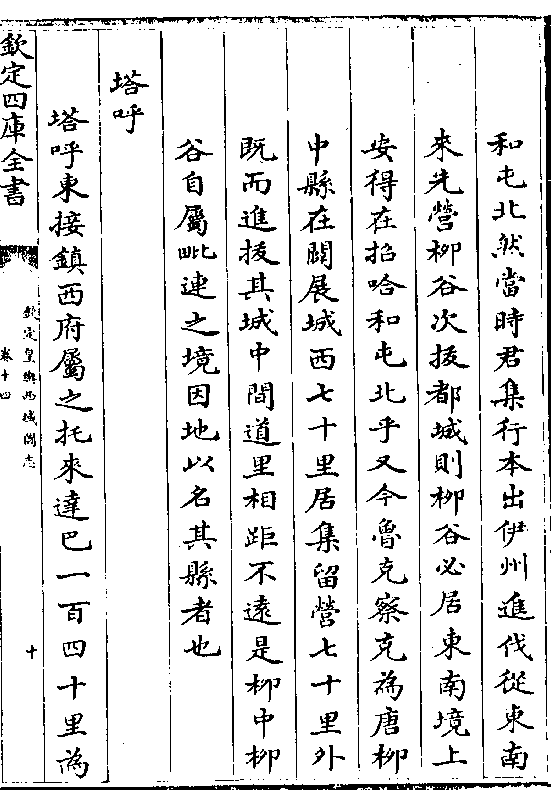 和屯北然當時君集行本出伊州進伐從東南
來先營柳谷次拔都城則柳谷必居東南境上
安得在招哈和屯北乎又今魯克察克為唐柳
中縣在闢展城西七十里居集留營七十里外
既而進拔其城中間道里相距不遠是柳中柳
谷自屬毗連之境因地以名其縣者也
塔呼
塔呼東接鎮西府屬之托來達巴一百四十里為
欽定四庫全書
欽定皇輿西域圖志
卷十四
十